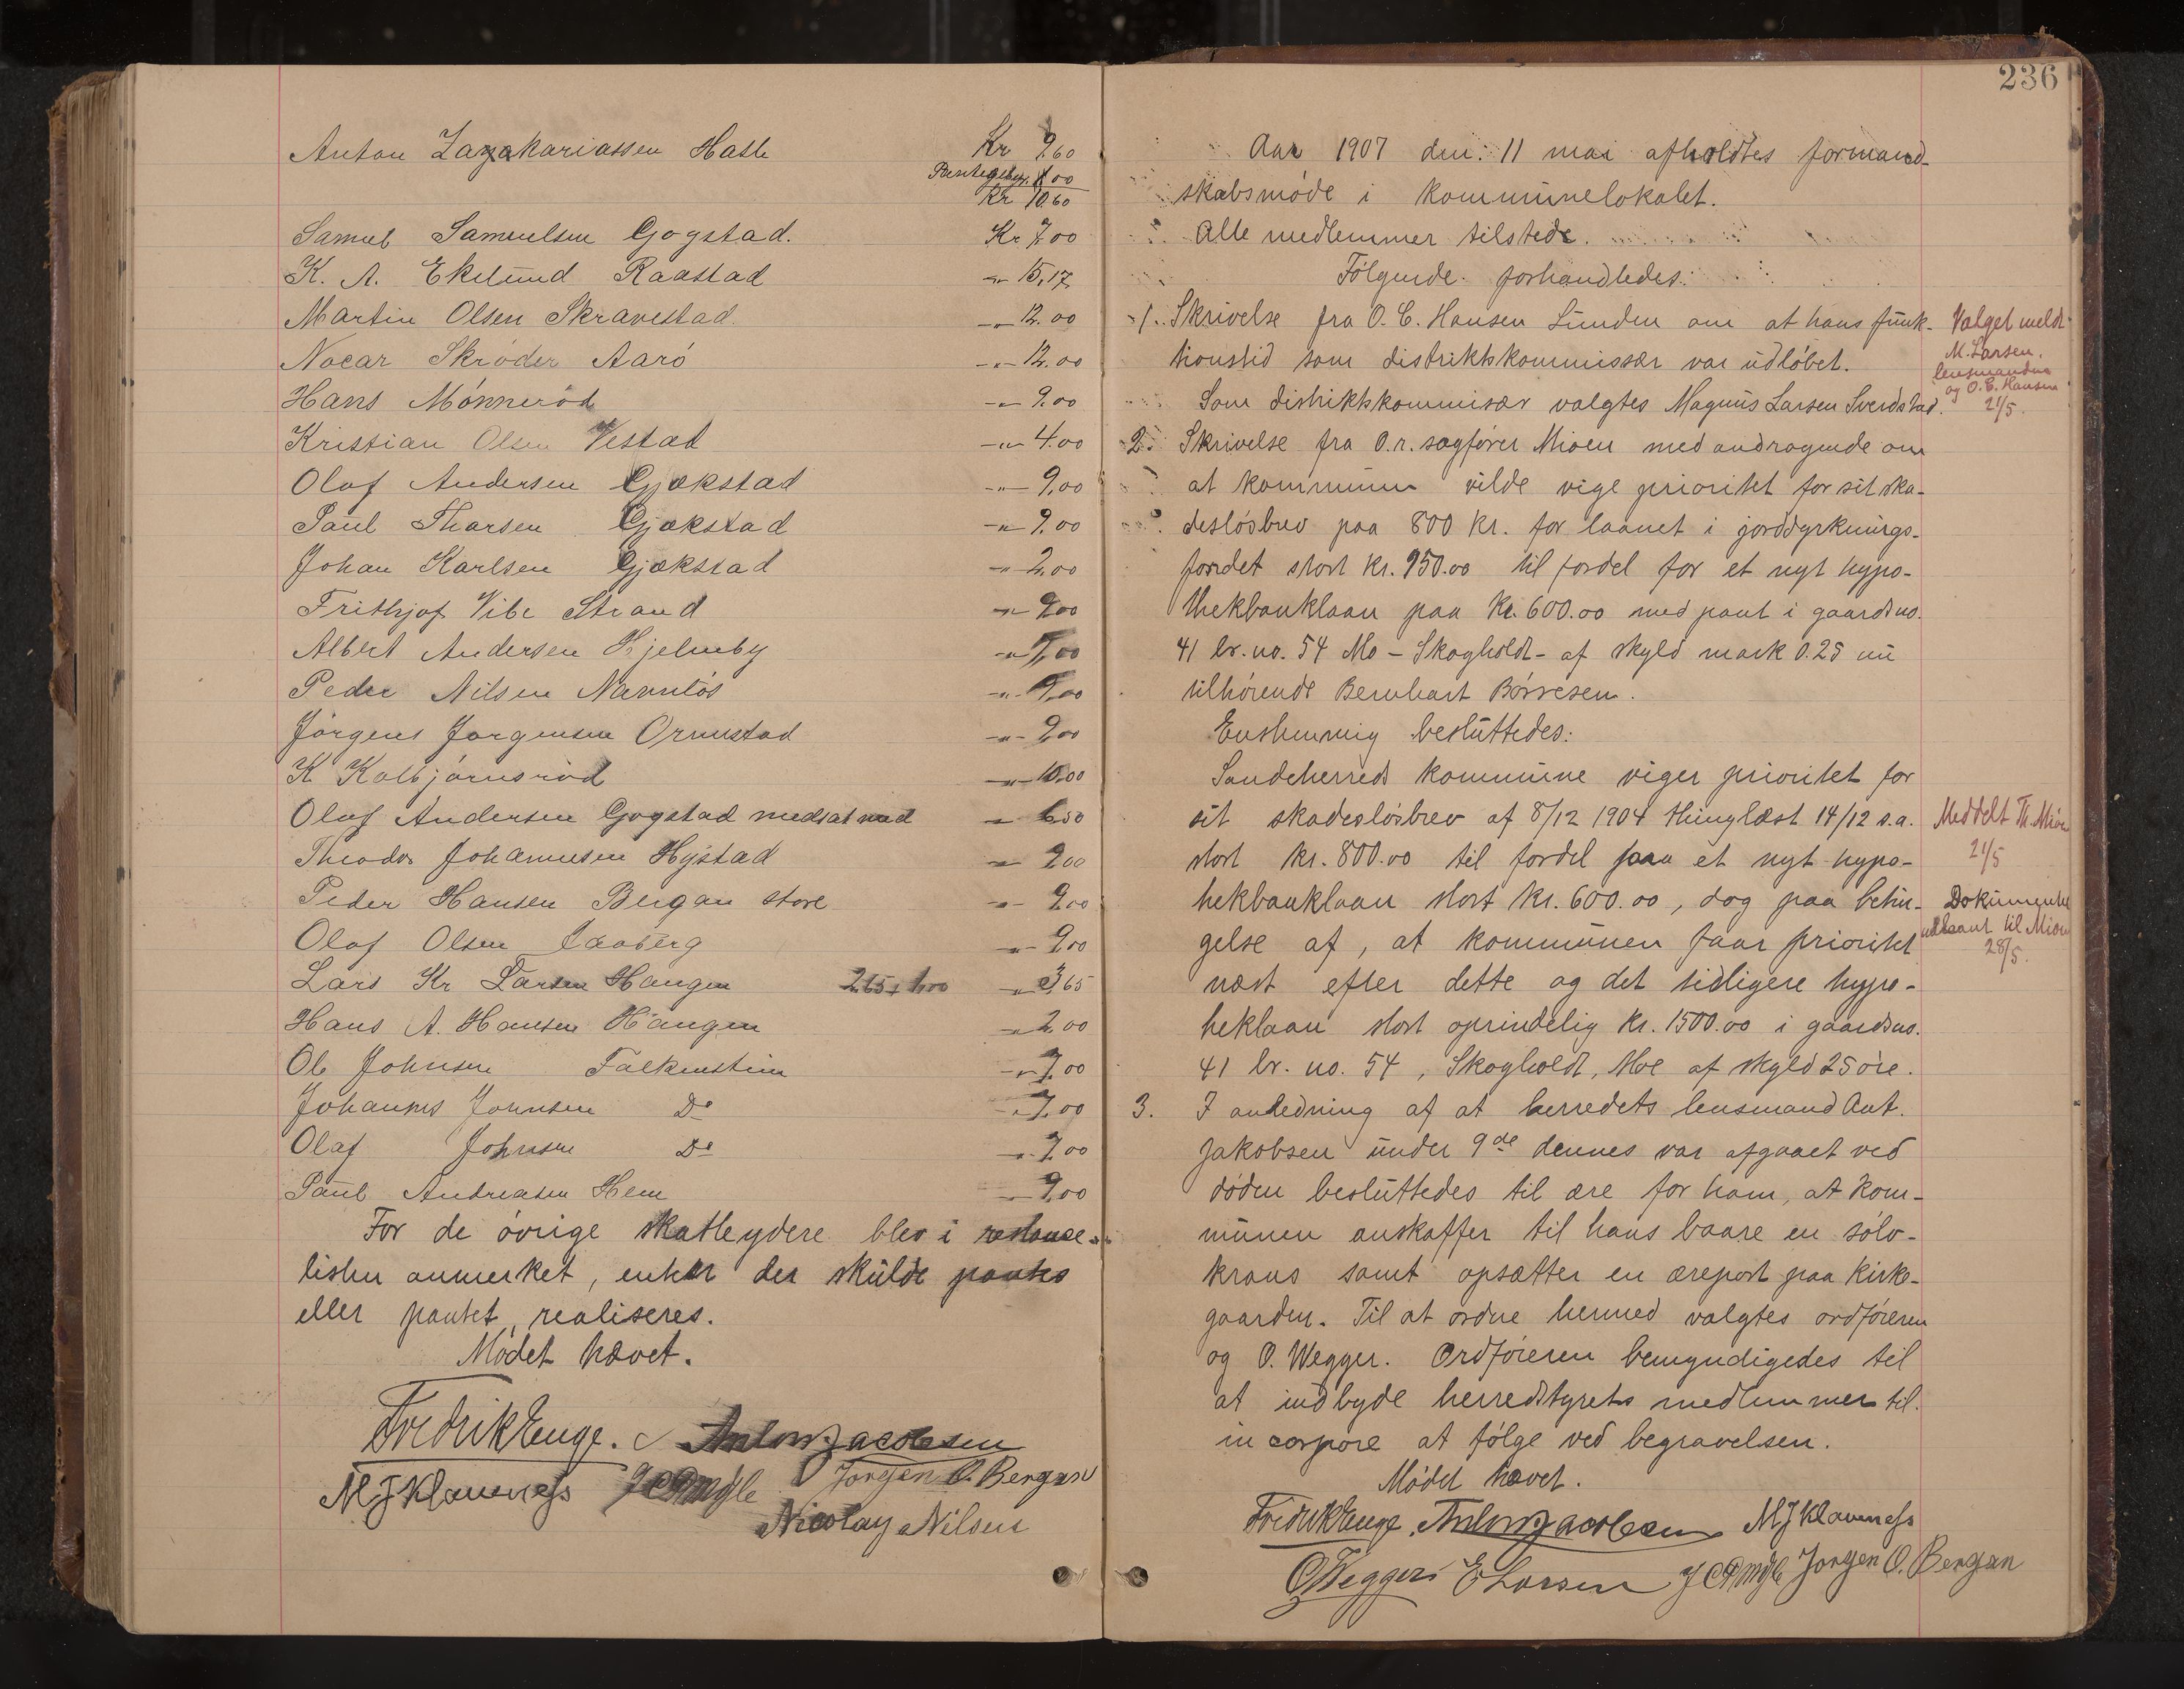 Anton Zazakariassen Hasle Kr 9.60
Pantegebyr. 1.00
Kr 10.60
Samuel Samuelsen Gogstad. Kr 7.00
K. A. Ekelund Raastad -"- 15.17
Martin Olsen Skravestad. -"- 12.00
Nocar Skröder Aarö -"- 12.00
Hans Mönneröd -"- 9.00
Kristian Olsen Vestad -"- 4.00
Olaf Andersen Gjekstad -"- 9.00
Paul Thorsen Gjekstad -"- 9.00
Johan Karlsen Gjekstad -"- 2.00
Frithjof Vibe Strand -"- 9.00
Albert Andersen Hjelmby
Peder Nilsen Navnlös
Jörgen Jörgensen Ormestad -"- 9.00
K Kolbjörnsröd -"- 10.00
Olaf Andersen Gogstad nedsat med -"- 6.50
Theodor Johannesen Hystad -"- 9.00
Peder Hansen Bergan store -"- 9.00
Olaf Olsen -"- 9.00
Lars Kr Larsen Haugen 2.65 + 1.00 -"- 3.65
Hans A. Hansen Haugen -"- 2.00
Ole Johnsen Falkenstein -"- 7.00
Johannes Johnsen Do -"- 7.00
Olaf Johnsen Do -"- 7.00
Paul Andreasen Hem -"- 9.00
For de övrige skatteydere blev i restance-
listen anmerket, enten der skulde pantes
eller pantet realiseres.
Mödet hævet.
Fredrik Enge. Anton Jacobsen
M J Klaveness Jörgen O. Bergan
Nicolay Nilsen
236
Aar 1907 den 11 mai afholdtes formand-
skabsmöde i kommunelokalet.
Alle medlemmer tilstede.
Fölgende forhandledes:
1. Skrivelse fra O. C. Hansen Lunden om at hans funk-
tionstid som distriktskommissær var udlöbet.
Som distriktskommisær valgtes Magnus Larsen Sverdstad.
Valget meldt
M. Larsen,
lensmanden
og O. C. Hansen
21/5.
2. Skrivelse fra O.r. sagförer Mioen med andragende om
at kommunen vilde vige prioritet for sit ska-
deslösbrev paa 800 kr. for laanet i jorddyrknings-
fondet stort kr. 950.00 til fordel for et nyt hypo-
thekbanklaan paa kr. 600.00 med pant i gaardsno.
41 br. no. 54 Mo - Skogholdt - af skyld mark 0.25 nu
tilhörende Bernhart Börresen.
Enstemmig besluttedes:
Sandeherreds kommune viger prioritet for
sit skadeslösbrev af 8/12 1904 thinglæst 14/12 s.a.
stort kr. 800.00 til fordel for et nyt hypo-
thekbanklaan stort kr. 600.00, dog paa betin-
gelse af, at kommunen faar prioritet
næst efter dette og det tidligere hypo-
theklaan stort oprindelig kr. 1500.00 i gaardsno.
41 br. no. 54, Skogholdt, Moe af skyld 25 öre.
Meddelt Th. Mioen
21/5
Dokumenter
udlaant til Mioen
28/5.
3. I anledning af at herredets lensmand Ant.
Jakobsen under 9de dennes var afgaaet ved
döden besluttedes til ære for ham, at kom-
munen anskaffer til hans baare en sölv-
krans samt opsætter en æreport paa kirke-
gaarden. Til at ordne hermed valgtes ordföreren
og O. Wegger. Ordföreren bemyndigedes til
at indbyde herredstyrets medlemmer til
in corpore at fölge ved begravelsen.
Mödet hævet.
Fredrik Enge. Anton Jacobsen M J Klaveness
O Wegger E Larsen Jörgen O. Bergan